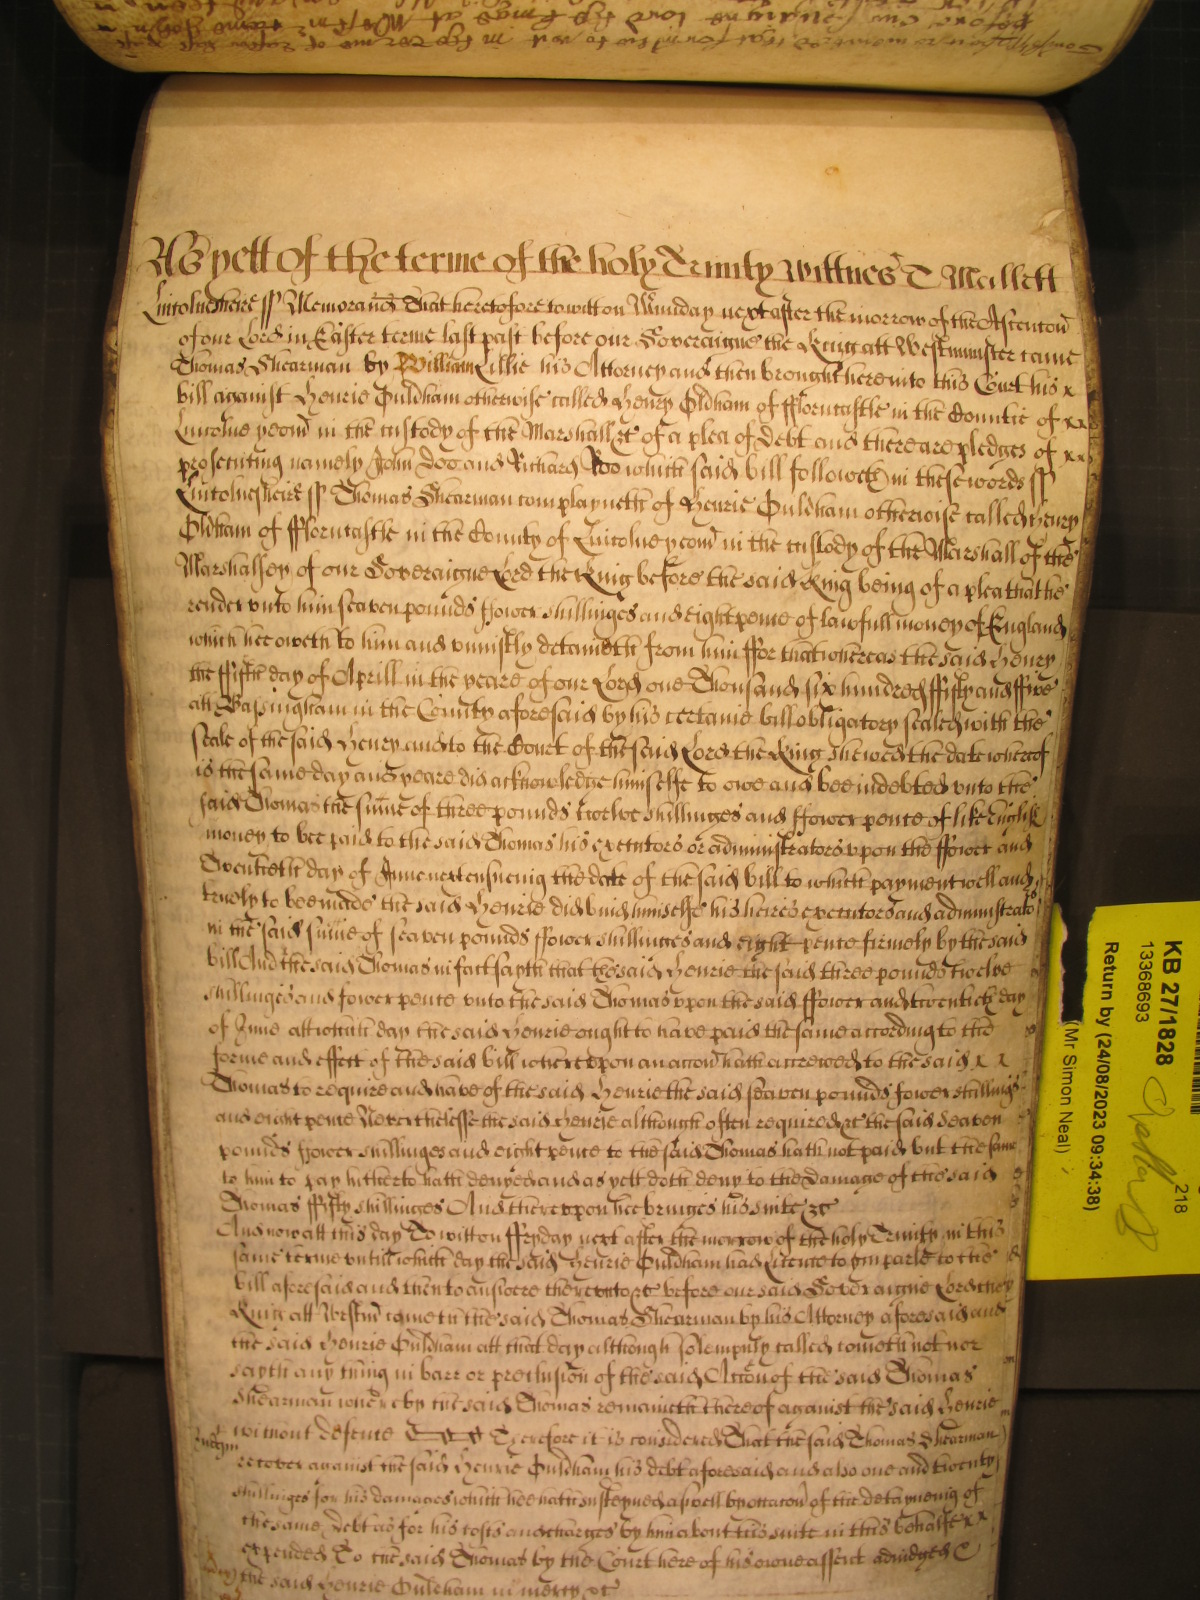 As yett of the terme of the holy Trinity wittnes T Mallett
Lincolnesheire ss Memorand That heretofore to witt on Munday next after the morrow of the Ascention
of our Lord in Easter terme last past before our Soveraigne the King att Westminster came
Thomas Shearman by William Lillie his Attorney and then brought here into this Court his x
bill against Henrie Ouldham otherwise called Henry Oldham of Horncastle in the Countie of xx
Lincolne yeom in the custody of the Marshall &c of a plea of debt and there are pledges of xx
prosecuting namely John Doo and Richard Roo which said bill followeth in these words ss
Lincolnesheire ss Thomas Shearman complayneth of Henrie Ouldham otherwise called Henry
Oldham of Horncastle in the County of Lincolne yeom in the custody of the Marshall of the
Marshalsey of our Soveraigne Lord the King before the said King being of a plea that he
render unto him seaven pounds fower shillinges and eight pence of lawfull money of England
which hee oweth to him and uniustly detaineth from him ffor that whereas the said Henry
the ffifth day of Aprill in the yeare of our Lord one Thousand six hundred ffifty and ffive
att Bassingham in the County aforesaid by his certaine bill obligatory sealed with the
seale of the said Henry and to the Court of the said Lord the King shewed the date whereof
is the same day and yeare did acknowledge himselfe to owe and bee indebted unto the
said Thomas the sume of three pounds twelve shillinges and ffower pence of like English
money to bee paid to the said Thomas his executors or administrators upon the ffower and
Twentieth day of June next ensueing the date of the said bill to which payment well and
truely to bee made the said Henrie did bind himselfe his heires executors and administrato
in the said sume of seaven pounds ffower shillinges and eight pence firmely by the said
bill And the said Thomas in fact sayth that the said Henrie the said three pounds twelve
shillinges and fower pence unto the said Thomas upon the said ffower and twentieth day
of June att which day the said Henrie ought to have paid the same according to the
forme and effect of the said bill whereupon an accon hath accrewed to the said x x
Thomas to require and have of the said Henrie the said seaven pounds fower shillings
and eight pence Neverthelesse the said Henrie although often required &c the said Seaven
pounds fower shillinges and eight pence to the said Thomas hath not paid but the same
to him to pay hitherto hath denyed and as yett doth deny to the damage of the said
Thomas ffifty shillinges And thereupon hee bringes his suite &c
And now att this day To witt on ffryday next after the morrow of the holy Trinity in this
same terme untill which day the said Henrie Ouldham had Licence to imparle to the
bill aforesaid and then to answere thereunto &c before our said Soveraigne Lord the
King att Westm came the said Thomas Shearman by his Attorney aforesaid and
the said Henrie Ouldham att that day although solempnly called cometh not nor
sayth any thing in barr or preclusion of the said Accon of the said Thomas
Shearman whereby the said Thomas remaineth thereof against the said Henrie
without defence Therefore it is considered That the said Thomas Shearman
recover against the said Henrie Ouldham his debt aforesaid and also one and twenty
shillinges for his damages which hee hath susteyned aswell by occacon of the detayneing of
the same debt as for his costs and charges by him about his suite in this behalfe xx
expended To the said Thomas by the Court here of his owne assent adiudged &
the said Henrie Ouldham in mercy &c
KB 27/1828
13368693
218
Return by (24/08/2023 09:34:38)
(Mr Simon Neal)